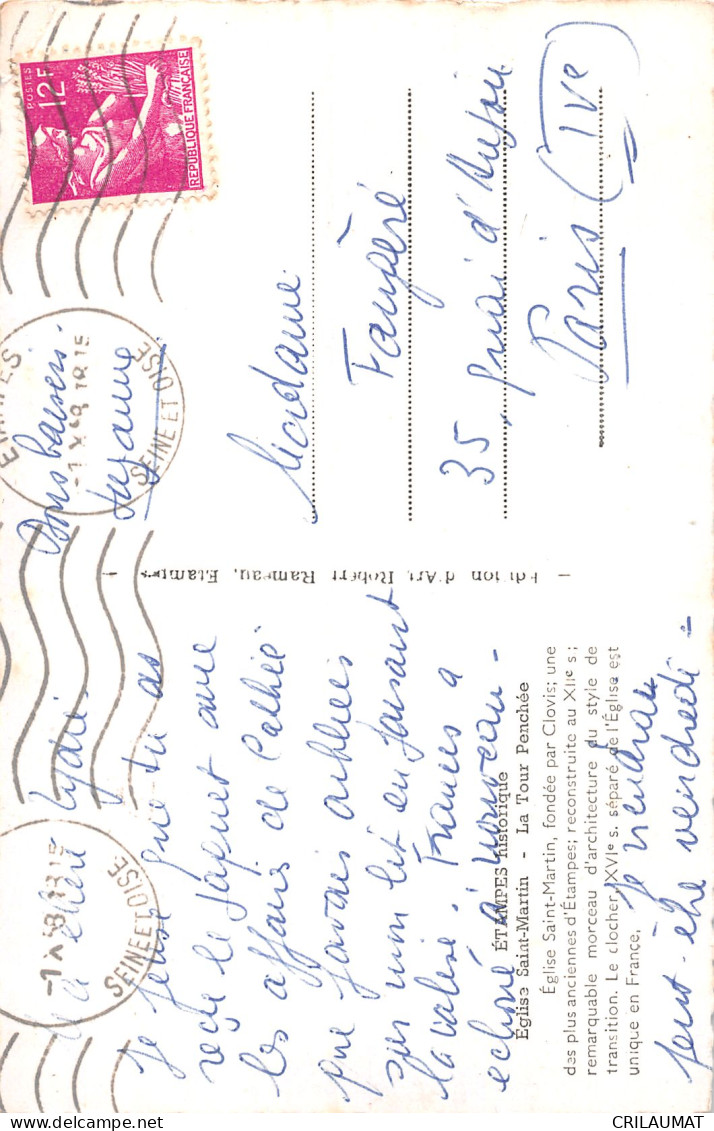 POSTES
12F
REPUBLIQUE FRANÇAISE
ETAMPES
18 15
SEINE ET OISE
SEINE ET OISE
Ma chère Lydie
Je pense que tu as
reçu le paquet avec
les affaires de
que j'avais oubliées
sur mon lit en faisant
la valise. Francis a
echoué à nouveau -
Je viendrai
peut-être vendredi -
Bons baisers.
Suzanne
Madame
Faugère
35, quai d'Anjou
Paris (IVe)
- Edition d'Art Robert Rameau, Etampes -
ÉTAMPES historique
Église Saint-Martin - La Tour Penchée
Église Saint-Martin, fondée par Clovis; une
des plus anciennes d'Étampes; reconstruite au XIIe s;
remarquable morceau d'architecture du style de
transition. Le clocher, XVIe s. séparé de l'Église est
unique en France,
CRILAUMAT